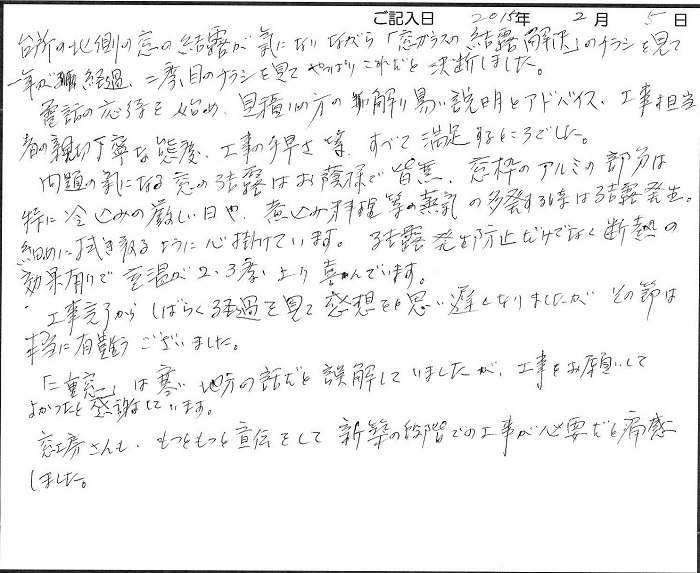 ご記入日 2015年 2月 5日
台所の北側の窓の結露が氣になりながら「窓ガラスの結露解決」のチラシを見て
一年が経過、二度目のチラシを見てやっぱりこれだと決断しました。
電話の応待を始め、見積り方の解り易い説明とアドバイス、工事担当
者の親切丁寧な態度、工事の手早さ等、すべて満足するところでした。
問題の氣になる窓の結露はお蔭様で皆無、窓枠のアルミの部分は
特に冷込みの厳しい日や、煮込み料理等の蒸氣の多発する時は結露発生。
細めに拭き取るように心掛けています。結露発生防止だけでなく断熱の
効果有りで室温が2、3度上り喜んでいます。
工事完了からしばらく経過を見て感想をと思い遅くなりましたが その節は
本当に有難うございました。
「二重窓」は寒い地方の話だと誤解していましたが、工事をお願いして
よかったと感謝しています。
窓工房さんも、もっともっと宣伝をして新築の段階での工事が必要だと痛感
しました。